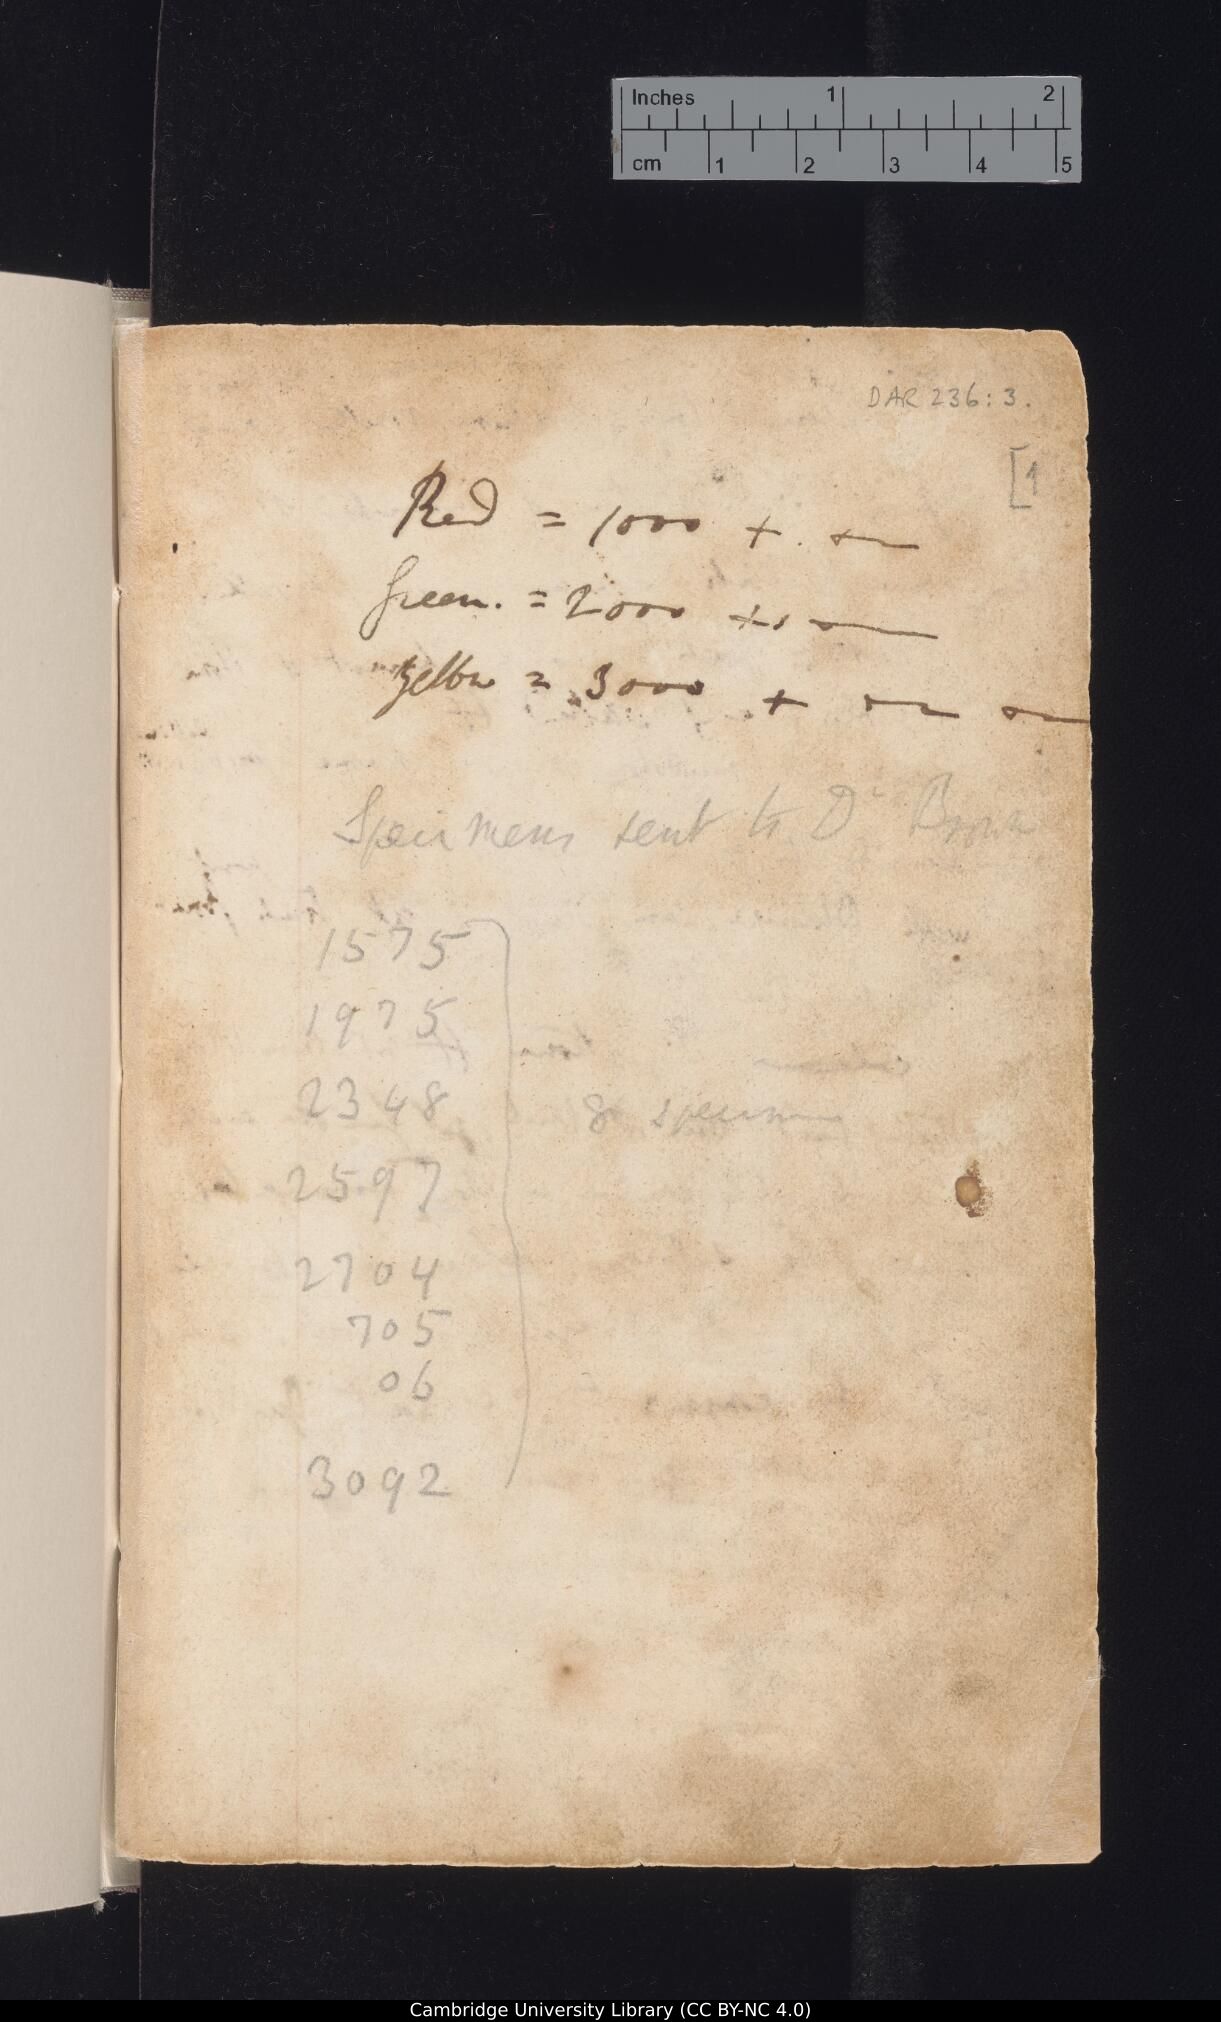 Inches 1 2
cm 1 2 3 4 5
DAR 236:3.
[1
Red = 1000 +
Green. = 2000 +
Yellow = 3000 +
Specimens sent to Dr Brown
1575
1975
2348
8 specimens
2597
2704
705
06
3092
Cambridge University Library (CC BY-NC 4.0)